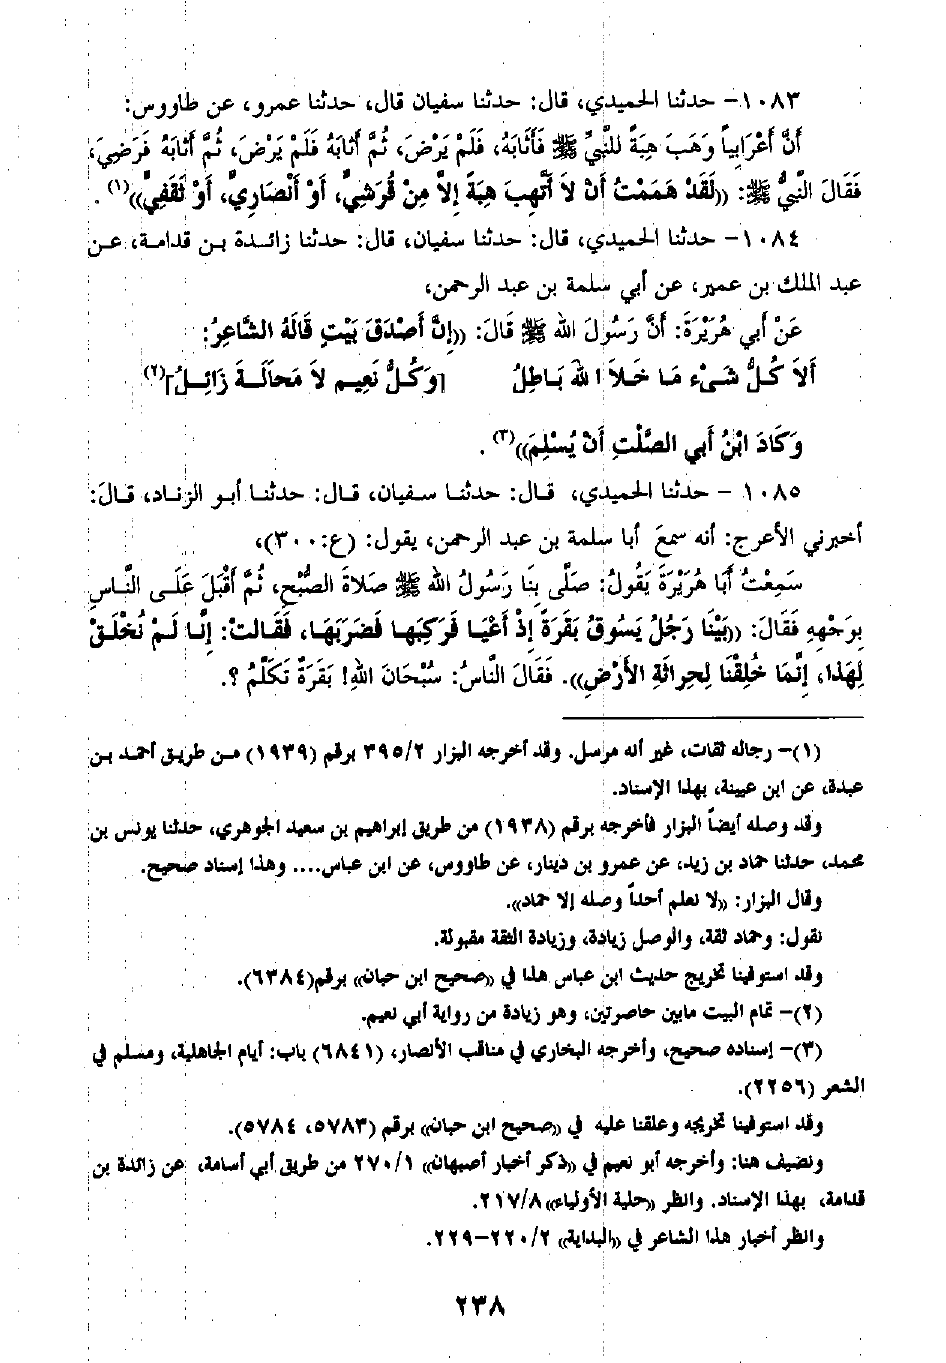 ١٠٨٣- حدثنا الحميدي، قال: حدثنا سفيان قال، حدثنا عمرو، عن طاووس:
أَنَّ أَعْرَابِياً وَهَبَ هِبَةً للنَّبِيِّ ﷺ فَأَثَابَهُ، فَلَمْ يَرْضَ، ثُمَّ أَثَابَهُ فَلَمْ يَرْضَ، ثُمَّ أَثَابَهُ فَرَضِيَ،
فَقَالَ النَّبِيُّ ﷺ: ((لَقَدْ هَمَمْتُ أَنْ لاَ أَتَّهِبَ هِبَةً إِلاَّ مِنْ قُرَشِيٍّ، أَوْ أَنْصَارِيٍّ، أَوْ ثَقَفِيٍّ))(١).
١٠٨٤- حدثنا الحميدي، قال: حدثنا سفيان، قال: حدثنا زائدة بن قدامة، عن
عبد الملك بن عمير، عن أبي سلمة بن عبد الرحمن،
عَنْ أَبِي هُرَيْرَةَ: أَنَّ رَسُولَ الله ﷺ قَالَ: ((إِنَّ أَصْدَقَ بَيْتٍ قَالَهُ الشَّاعِرُ:
أَلاَ كُلُّ شَيْءٍ مَا خَلاَ اللهَ بَاطِلُ [وَكُلُّ نَعِيم لاَ مَحَالَةَ زَائِلُ](٢)
وَكَادَ ابْنُ أَبِي الصَّلْتِ أَنْ يُسْلِمَ))(٣).
١٠٨٥- حدثنا الحميدي، قال: حدثنا سفيان، قال: حدثنا أبو الزناد، قال:
أخبرني الأعرج: أنه سمعَ أبا سلمة بن عبد الرحمن، يقول: (ع:٣٠٠)،
سَمِعْتُ أَبَا هُرَيْرَةَ يَقُولُ: صَلَّى بِنَا رَسُولُ الله ﷺ صَلاَةَ الصُّبْحِ، ثُمَّ أَقْبَلَ عَلَى النَّاسِ
بِوَجْهِهِ فَقَالَ: ((بَيْنَا رَجُلٌ يَسُوقُ بَقَرَةً إِذْ أَعْيَا فَرَكِبَهَا فَضَرَبَهَا، فَقَالَتْ: إِنَّا لَمْ نُخْلَقْ
لِهَذَا، إِنَّمَا خُلِقْنَا لِحِرَاثَةِ الأَرْضِ)). فَقَالَ النَّاسُ: سُبْحَانَ اللهِ! بَقَرَةٌ تَكَلَّمُ ؟.
(١)- رجاله ثقات، غير أنه مرسل. وقد أخرجه البزار ٣٩٥/٢ برقم (١٩٣٩) من طريق أحمد بن
عبدة، عن ابن عيينة، بهذا الإسناد.
وقد وصله أيضاً البزار فأخرجه برقم (١٩٣٨) من طريق إبراهيم بن سعيد الجوهري، حدثنا يونس بن
محمد، حدثنا حماد بن زيد، عن عمرو بن دينار، عن طاووس، عن ابن عباس.... وهذا إسناد صحيح.
وقال البزار: ((لا نعلم أحداً وصله إلا حماد)).
نقول: وحماد ثقة، والوصل زيادة، وزيادة الثقة مقبولة.
وقد استوفينا تخريج حديث ابن عباس هذا في ((صحيح ابن حبان)) برقم(٦٣٨٤).
(٢)- تمام البيت مابين حاصرتين، وهو زيادة من رواية أبي نعيم.
(٣)- إسناده صحيح، وأخرجه البخاري في مناقب الأنصار، (٦٨٤١) باب: أيام الجاهلية، ومسلم في
الشعر (٢٢٥٦).
وقد استوفينا تخريجه وعلقنا عليه في ((صحيح ابن حبان)) برقم (٥٧٨٣، ٥٧٨٤).
ونضيف هنا: وأخرجه أبو نعيم في ((ذكر أخبار أصبهان)) ٢٧٠/١ من طريق أبي أسامة، عن زائدة بن
قدامة، بهذا الإسناد. وانظر ((حلية الأولياء)) ٢١٧/٨.
وانظر أخبار هذا الشاعر في ((البداية)) ٢٢٠/٢-٢٢٩.
٢٣٨